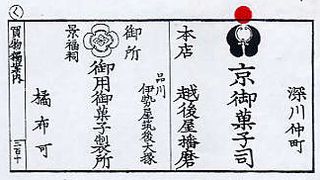 深川仲町
京御菓子司
本店
越後屋播磨
品川
伊勢屋筑後大掾
御所
御用御菓子製所
景福祠
橘布可
く
買物独案内
二百十